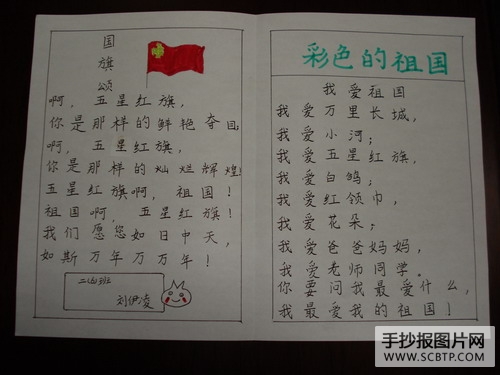 国旗颂
啊，五星红旗，
你是那样的鲜艳夺目，
啊，五星红旗，
你是那样的灿烂辉煌！
五星红旗啊，祖国！
祖国啊，五星红旗！
我们愿您如日中天，
如斯万年万万年！
刘伊凌
彩色的祖国
我爱祖国
我爱万里长城，
我爱小河；
我爱五星红旗，
我爱白鸽；
我爱红领巾，
我爱花朵；
我爱爸爸妈妈，
我爱老师同学。
你要问我最爱什么，
我最爱我的祖国！
手抄报图片网
WWW.SCBTP.COM